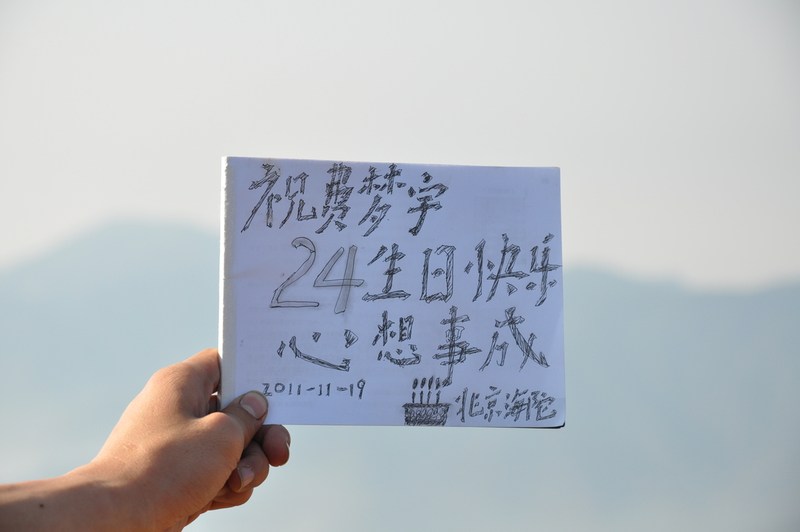 祝费梦宇
24生日快乐
心想事成
2011-11-19
北京海陀